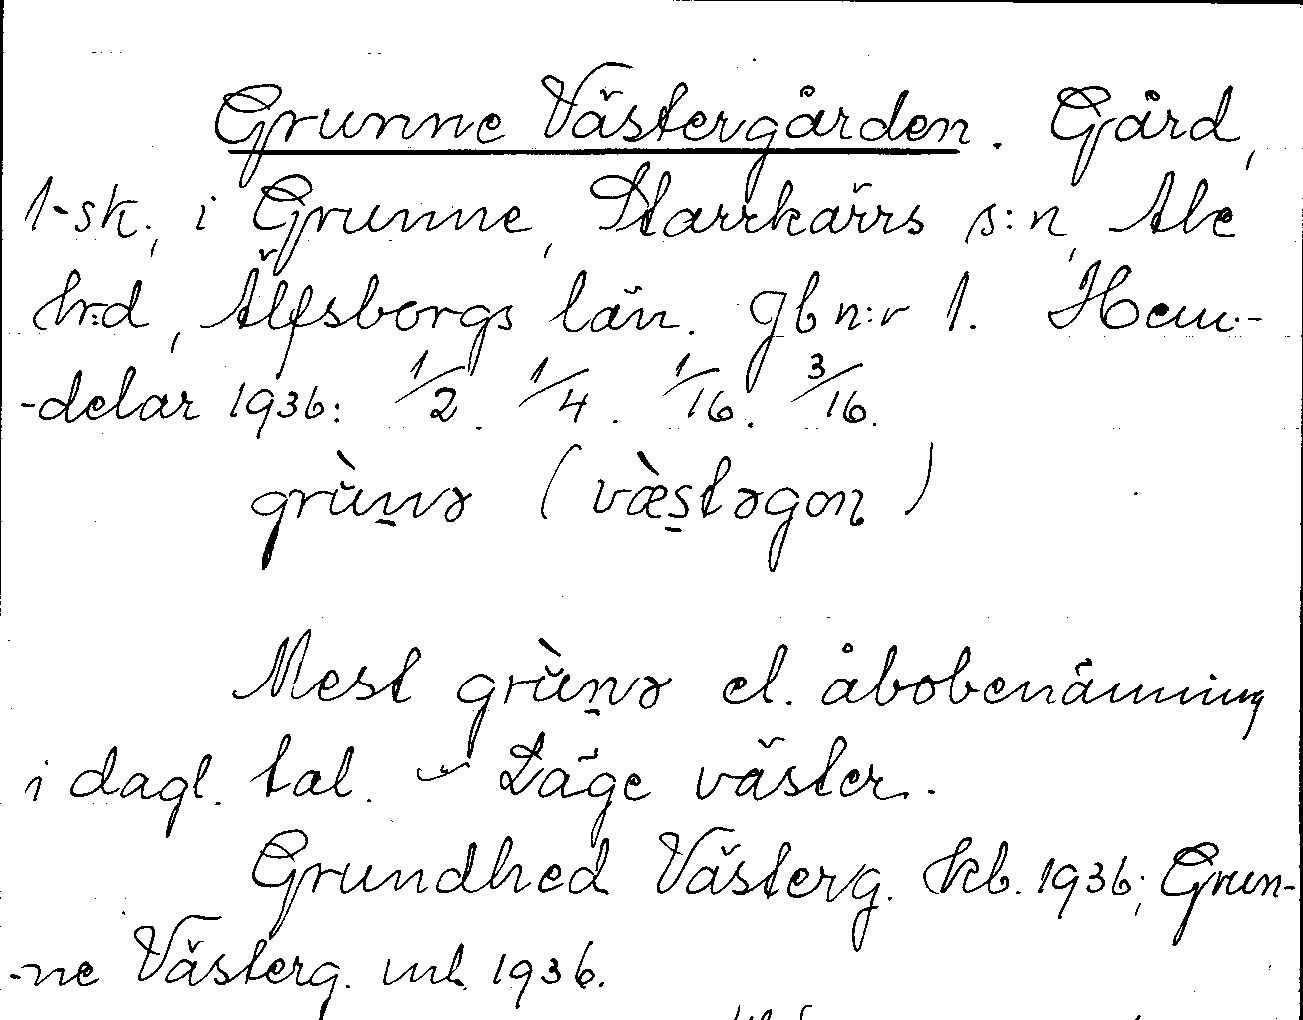 Grunne Västergården. Gård,
1-sk., i Grunne, Starrkärrs s:n, Ale
hrd, Älfsborgs län. Jb n:r 1. Hem-
-delar 1936: 1/2. 1/4. 1/16. 3/16.
grùnə (væ̀stəgoɳ)
Mest grùnə el. åbobenämning
i dagl. tal. – Läge väster.
Grundhed Västerg. kb. 1936; Grun-
-ne Västerg. ml. 1936.